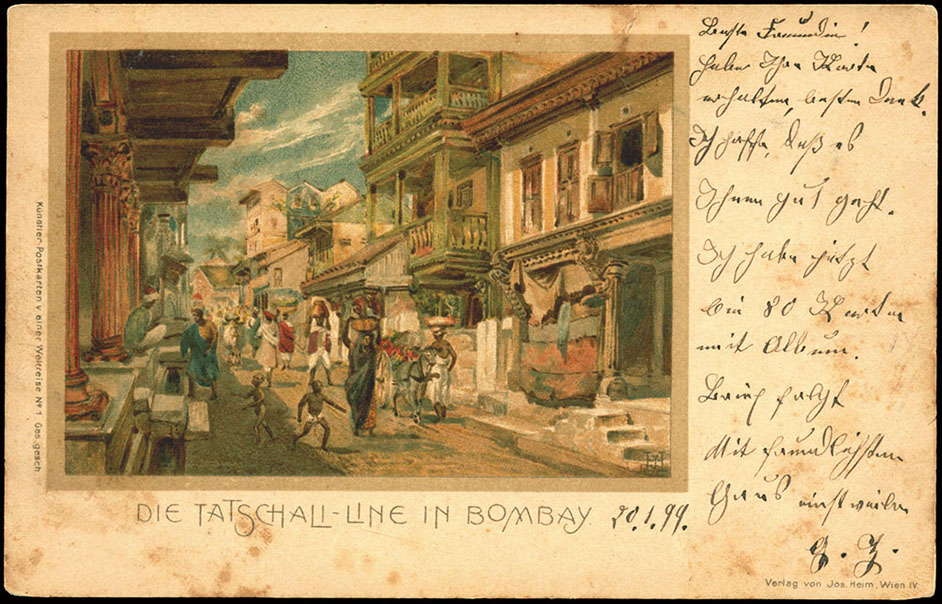 Beste Freundin!
habe Ihre Karte
erhalten, besten Dank.
Ich hoffe, daß es
Ihnen gut geht.
Ich habe jetzt
bei 80 Karten
mit Album.
Brief folgt
Mit freundlichsten
Gruß einstweilen
Künstler-Postkarten v. einer Weltreise No 1 Ges. gesch.
DIE TATSCHALL-LINE IN BOMBAY.
20.1.99.
Verlag von Jos. Heim, Wien IV.